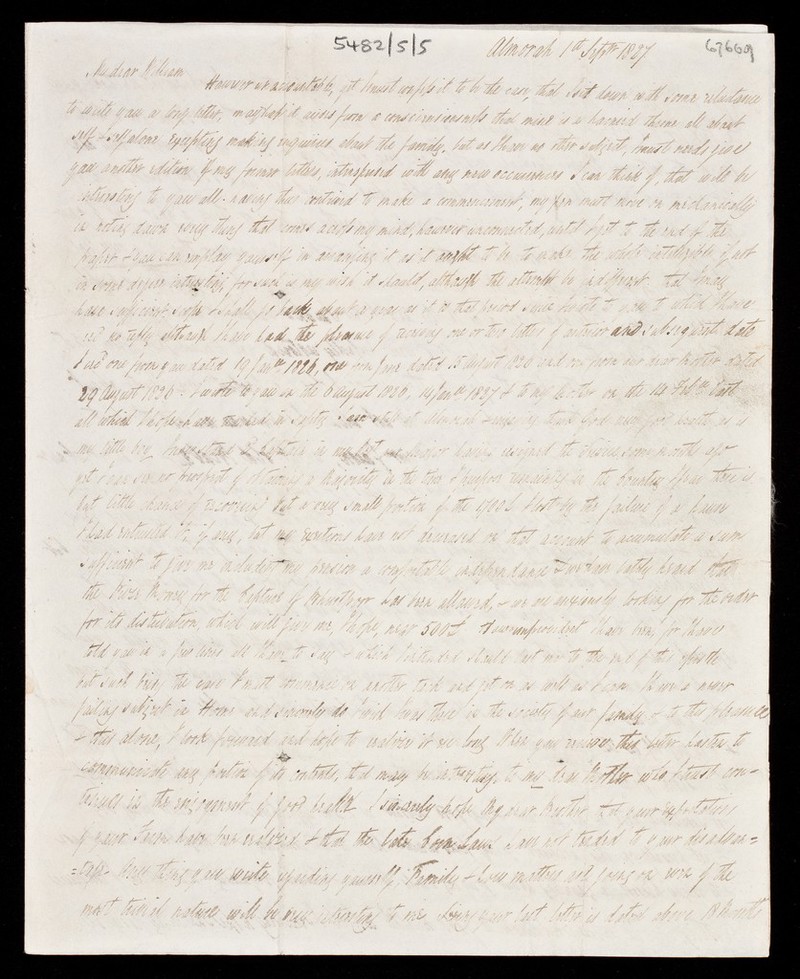 5482/5/5
Almorah 1st Septr 1827
67669
My dear William
However unaccountable, yet I must confess it to be the case, that I sit down with some reluctance
to write you a long letter, mayhap it arises from a consciousness that mine is a hacknied theme all about
self & self alone excepting making inquiries about the family, but as I have no other subject, I must needs give
you another edition of my former letters, interspersed with any new occurrences I can think of, that will be
interesting to you all. having thus contrived to make a commencement, my pen must move on mechanically
in noting down every thing that comes across my mind, however unconnected, until I get to the end of the
paper & you can employ yourself in arranging it as it ought to be to make the whole intelligible, if not
in some degree interesting, for such is my wish it should, although the attempt be indifferent. that I may
have sufficient I shall go back about a year as it is that period since I wrote to you to which I have
recd no reply although I have had the pleasure of receiving one or two letters of anterior and subsequent date
I recd one from you dated 19 Jany 1826, one from dated August 1826 and one from our dear Mother dated
29 August 1826. I wrote to you on the 6 August 1826, 14 Jany 1827 & to my Mother on the 14 Feby last
all which I hope have reached in safety. I am still at Almorah enjoying thank God very good health, as is
my little boy. in my having resigned the some months ago
yet I see no prospect of obtaining a Majority in the time I purpose remaining in the Country & I fear there is
but little chance of recovering but a very small portion of the 1700£ I lost by the failure of a house
I had entrusted it, if any, but my exertions have not decreased on that account to accumulate a sum
sufficient to give me including my pension a comfortable independance. We have lately heard that
the Prize Money for the Capture of Bhurtpoor has been allowed, & we are anxiously looking for the order
for its distribution, which will give me, I hope, near 500£. improvident I have been, for I have
told you in a few lines all I have to say & which I intended should last me to the end of this epistle
but such being the case I must commence on another tack and get on as well as I can. I have a never
failing subject in Home and sincerely do I wish I was there in the society of our family & to this pleasure
& this alone, I look forward and hope to realize it ere long. When you receive this letter hasten to
communicate any portion of its contents, that may be interesting to my dear Mother who I trust con=
tinues in the enjoyment of good health. I sincerely hope My dear Brother that your expectations
of your Farm have been realized & that the late Corn Laws have not tended to your disadvan=
=tage. Every thing you write regarding yourself, Family & how matters are going on even of the
most trivial nature will be very interesting to me. Seeing your last letter is dated above 18 Months